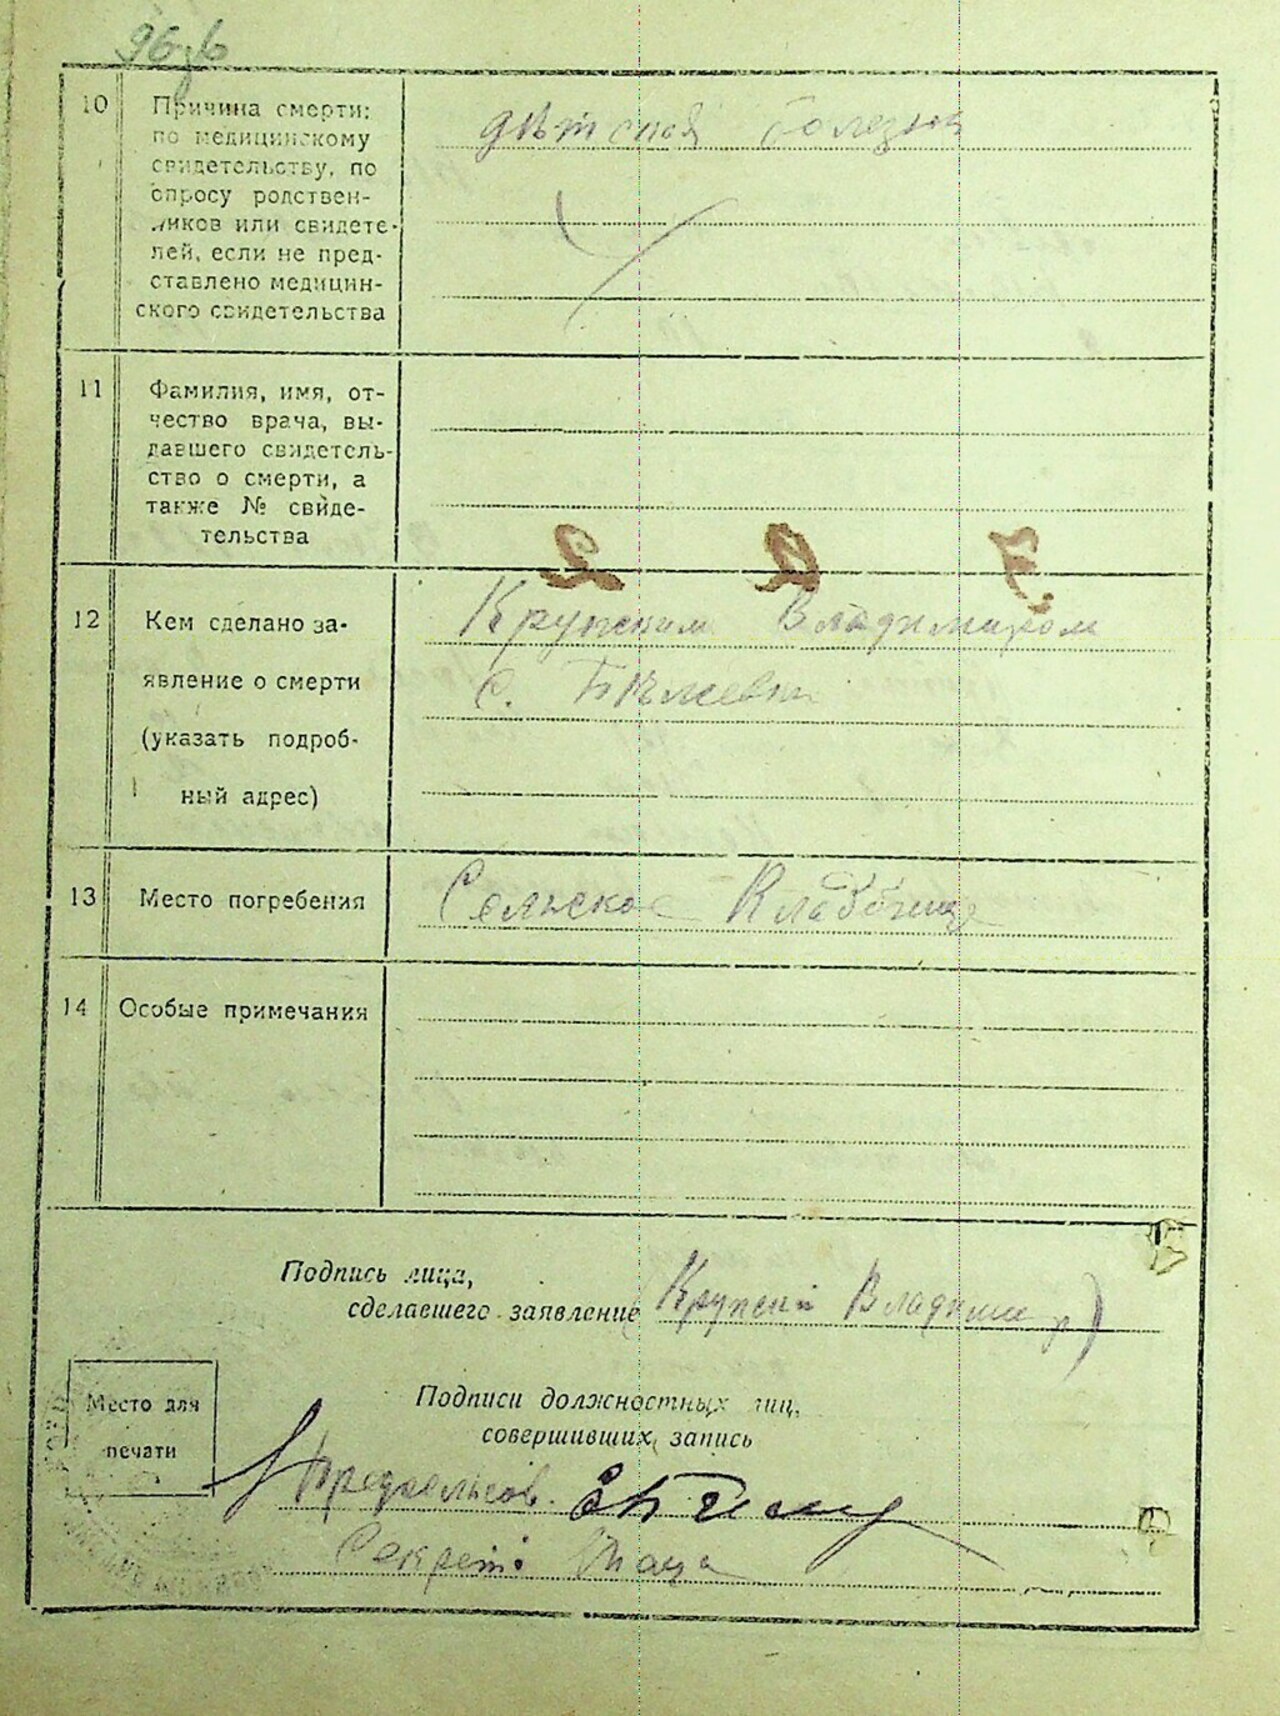 10 Причина смерти: дѣтская болезнь
по медицинскому
свидетельству, по
опросу родствен-
ников или свидете-
лей, если не пред-
ставлено медицин-
ского свидетельства
11 Фамилия, имя, от-
чество врача, вы-
давшего свидетель-
ство о смерти, а
также № свиде-
тельства
12 Кем сделано за- Крупским Владимиром
явление о смерти с.
(указать подроб-
ный адрес)
13 Место погребения Сельское Кладбище
14 Особые примечания
Подпись лица,
сделавшего заявление (Крупский Владимир)
Место для
печати
Подписи должностных лиц,
совершивших запись
Предсельсов.
Секрет.